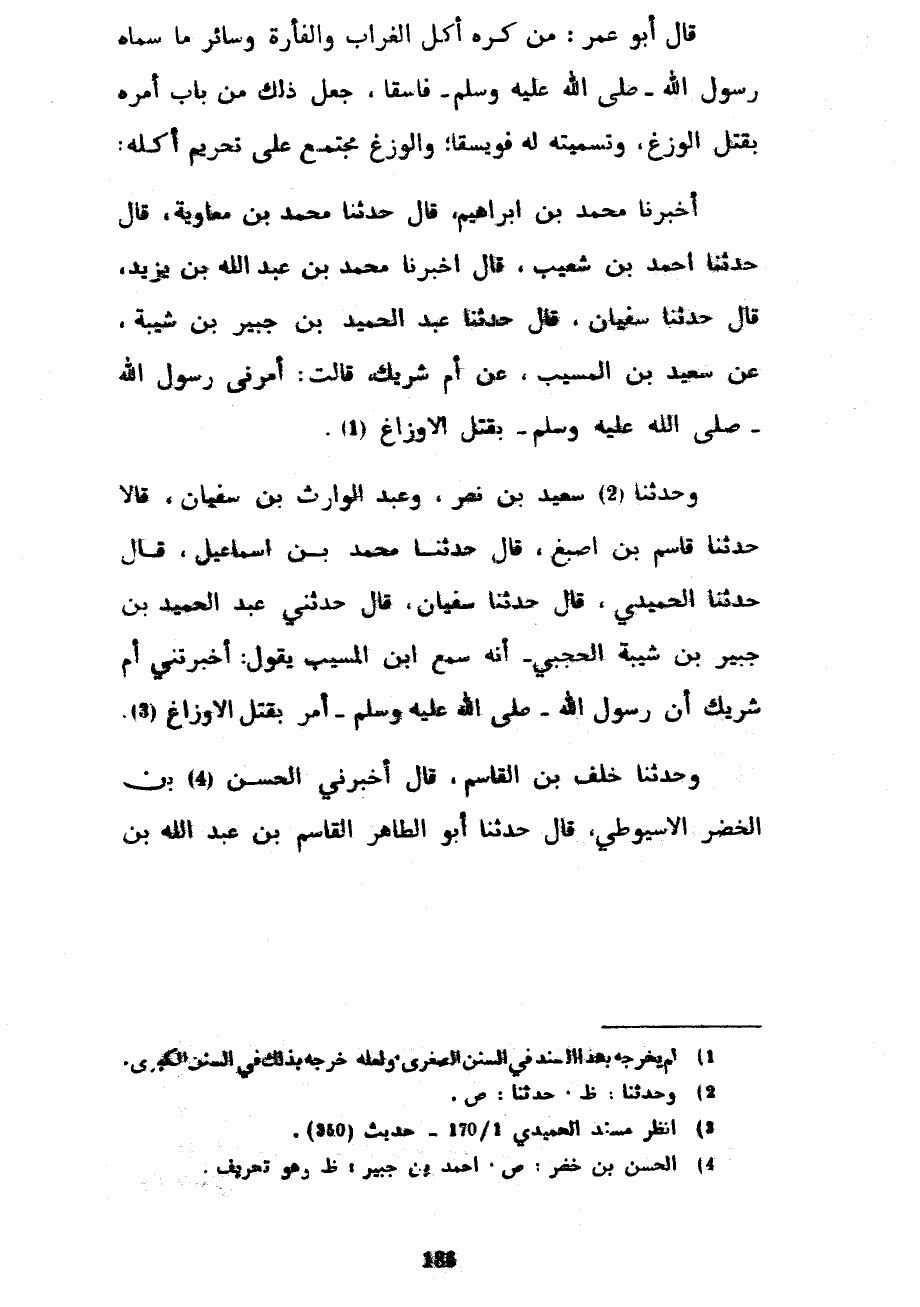 قال أبو عمر : من كره أكل الغراب والفأرة وسائر ما سماه
رسول الله ـ صلى الله عليه وسلم ـ فاسقا ، جعل ذلك من باب أمره
بقتل الوزغ، وتسميته له فويسقا؛ والوزغ مجتمع على تحريم أكله:
أخبرنا محمد بن ابراهيم، قال حدثنا محمد بن معاوية، قال
حدثنا احمد بن شعيب ، قال اخبرنا محمد بن عبد الله بن يزيد،
قال حدثنا سفيان ، قال حدثنا عبد الحميد بن جبير بن شيبة ،
عن سعيد بن المسيب ، عن أم شريك، قالت: أمرنى رسول الله
ـ صلى الله عليه وسلم ـ بقتل الاوزاغ (1) .
وحدثنا (2) سعيد بن نصر ، وعبد الوارث بن سفيان ، قالا
حدثنا قاسم بن اصبغ ، قال حدثنا محمد بن اسماعيل ، قال
حدثنا الحميدي ، قال حدثنا سفيان، قال حدثني عبد الحميد بن
جبير بن شيبة الحجبي ـ أنه سمع ابن المسيب يقول: أخبرتني أم
شريك أن رسول الله ـ صلى الله عليه وسلم ـ أمر بقتل الاوزاغ (3).
وحدثنا خلف بن القاسم ، قال أخبرني الحسن (4) بن
الخضر الاسيوطي، قال حدثنا أبو الطاهر القاسم بن عبد الله بن
1) لم يخرجه بهذا السند في السنن الصغرى، ولعله خرجه بذلك في السنن الكبرى.
2) وحدثنا : ظ ٠ حدثنا : ص .
3) انظر مسند الحميدي 170/1 ـ حديث (350) .
4) الحسن بن خضر : ص ٠ احمد بن جبير : ظ وهو تحريف .